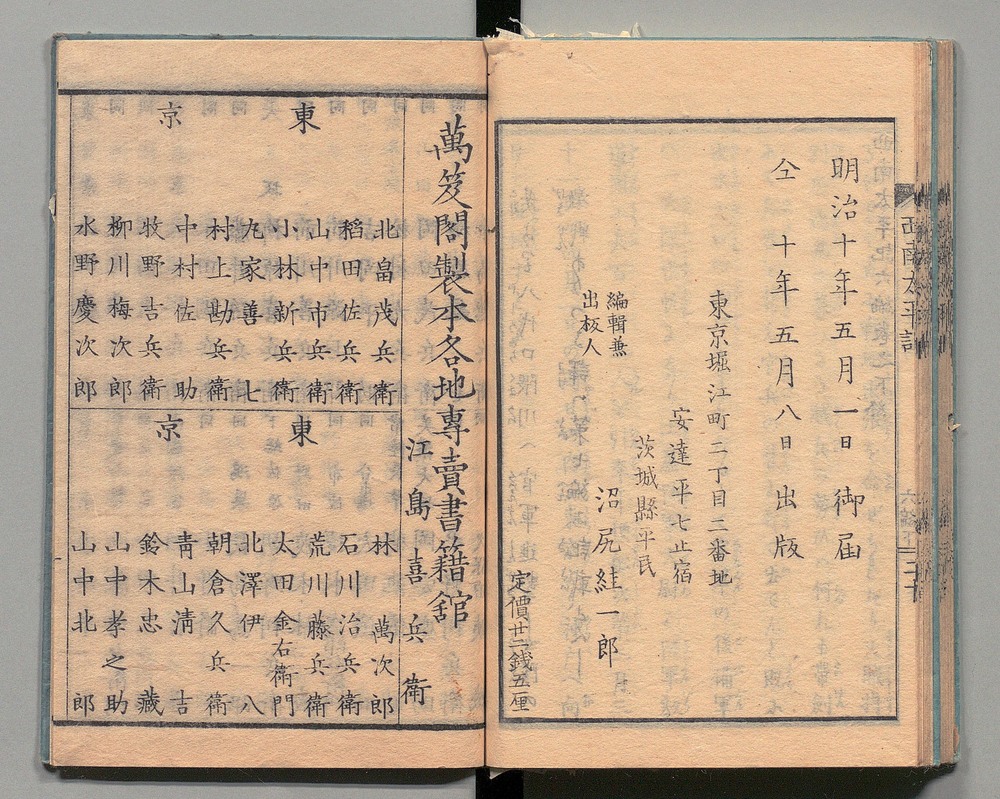 明治十年五月一日御届
仝十年五月八日出版
東京堀江町二丁目二番地
安達平七止宿
茨城縣平民
編輯兼
出板人
沼尻絓一郎
定價廿二錢五厘
西南太平記
萬笈閣製本各地專賣書籍舘
江島喜兵衛
東京
北畠茂兵衛
稻田佐兵衛
山中市兵衛
小林新兵衛
丸家善七
村上勘兵衛
中村佐助
牧野吉兵衛
柳川梅次郎
水野慶次郎
東京
林萬次郎
石川治兵衛
荒川藤兵衛
太田金右衛門
北澤伊八
朝倉久兵衛
靑山淸吉
鈴木忠藏
山中孝之助
山中北郎